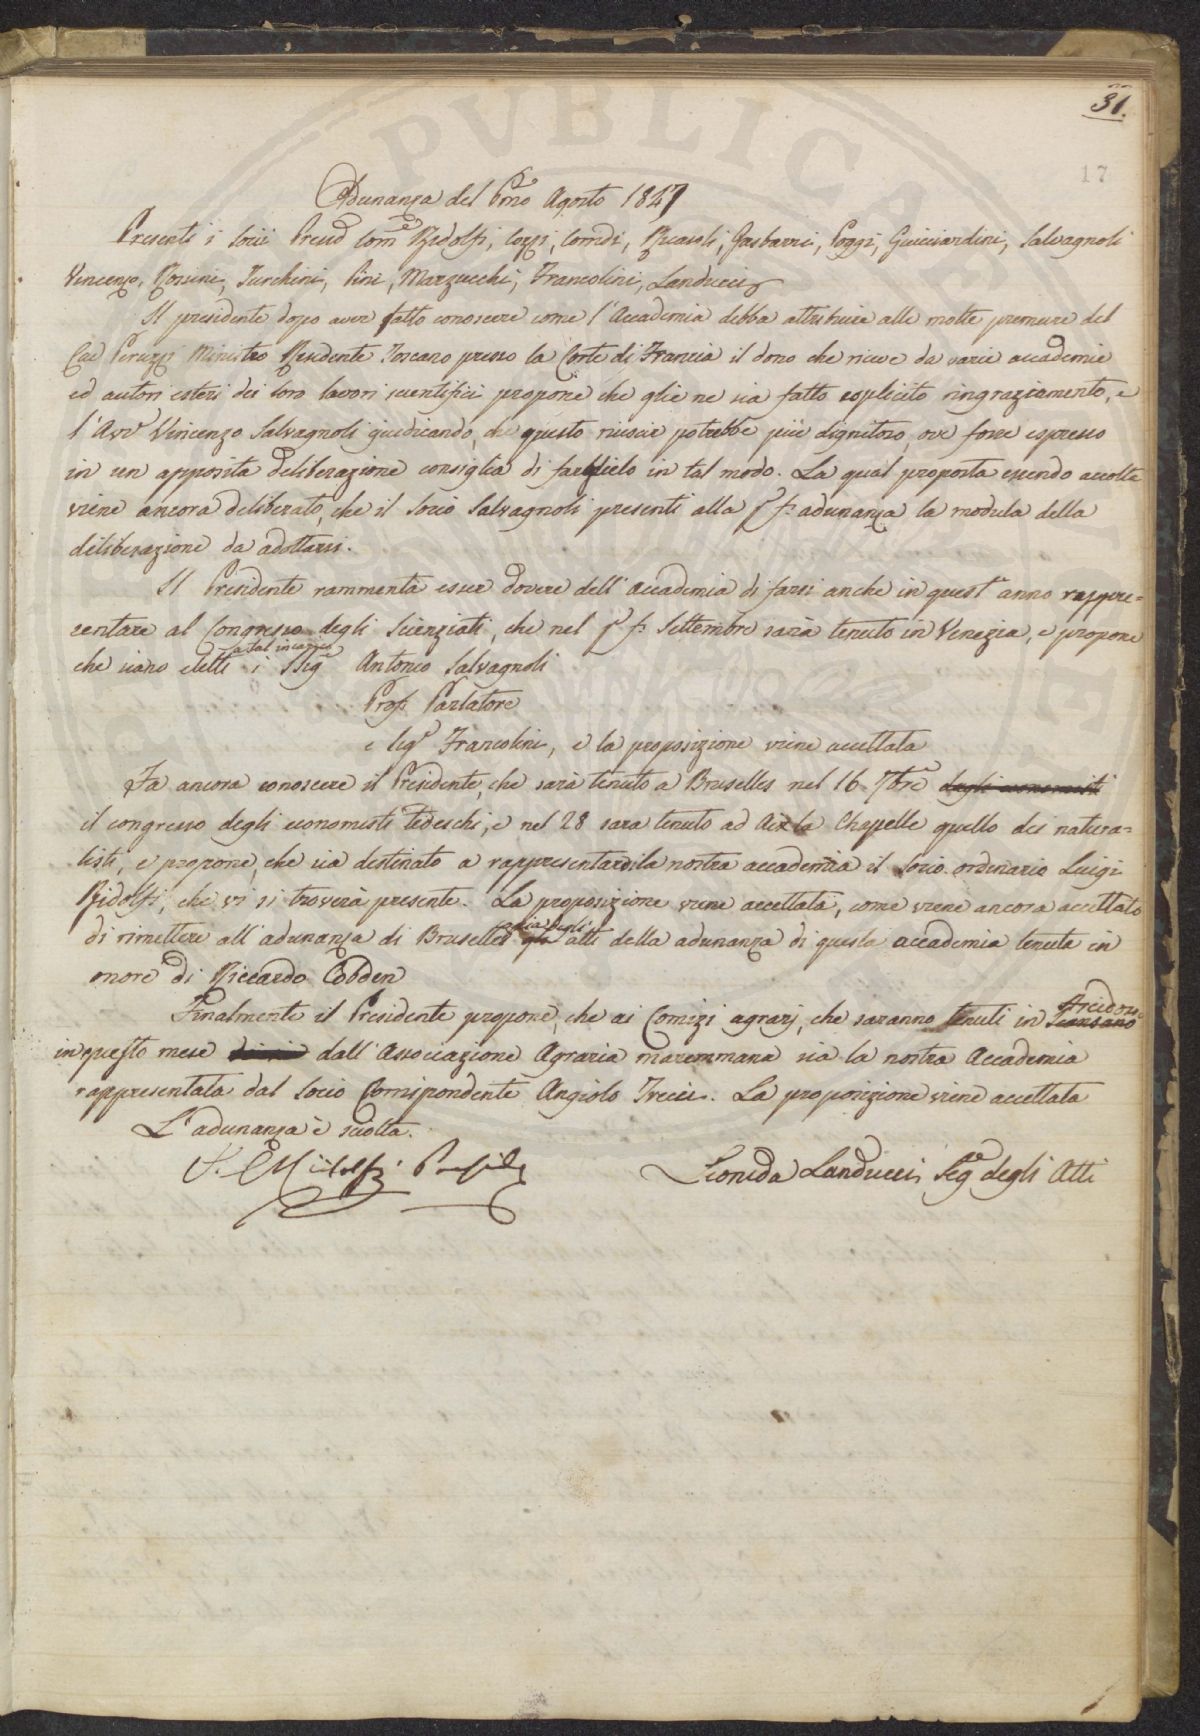 31.
17
Adunanza del Pmo Agosto 1847
Presenti i Socii Presid Come Ridolfi, Cozzi, Corridi, Ricasoli, Gasbarri, Poggi, Guicciardini, Salvagnoli
Vincenzo, Rossini, Turchini, Pini, Marzucchi, Francolini, Landucci
Il presidente dopo aver fatto conoscere come l'Accademia debba attribuire alle molte premure del
Cav Peruzzi Ministro Residente Toscano presso la Corte di Francia il dono che riceve da varie accademie
ed autori esteri dei loro lavori scientifici propone che glie ne sia fatto esplicito ringraziamento, e
l'Avvo Vincenzo Salvagnoli giudicando, che questo riuscir potrebbe più dignitoso ove fosse espresso
in un apposita deliberazione consiglia di farglielo in tal modo. La qual proposta essendo accolta
viene ancora deliberato, che il Socio Salvagnoli presenti alla p. f. adunanza la modula della
deliberazione da adottarsi.
Il Presidente rammenta esser dovere dell'accademia di farsi anche in quest'anno rappre=
sentare al Congresso degli Scienziati, che nel p. f. Settembre sarà tenuto in Venezia, e propone
che siano eletti a tal incarico i Sigi Antonio Salvagnoli
Prof. Parlatore
e Sigr Francolini, e la proposizione viene accettata
Fa ancora conoscere il Presidente, che sarà tenuto a Bruselles nel 16 7bre degli economisti
il congresso degli economisti Tedeschi, e nel 28 sara tenuto ad Aix la Chapelle quello dei natura=
listi, e propone, che sia destinato a rappresentarvi la nostra accademia il Socio ordinario Luigi
Ridolfi, che vi si troverà presente. La proposizione viene accettata, come viene ancora accettato
di rimettere all'adunanza di Bruselles copia degli gli atti della adunanza di questa accademia tenuta in
onore di Riccardo Cobden
Finalmente il Presidente propone, che ai Comizi agrarj, che saranno tenuti in Arcidosso Scansano
in questo mese dall'Associazione Agraria maremmana sia la nostra Accademia
rappresentata dal Socio Corrispondente Angiolo Frecci. La proposizione viene accettata
L'adunanza è sciolta.
Ridolfi Leonida Landucci Sego degli Atti
PVBLICA